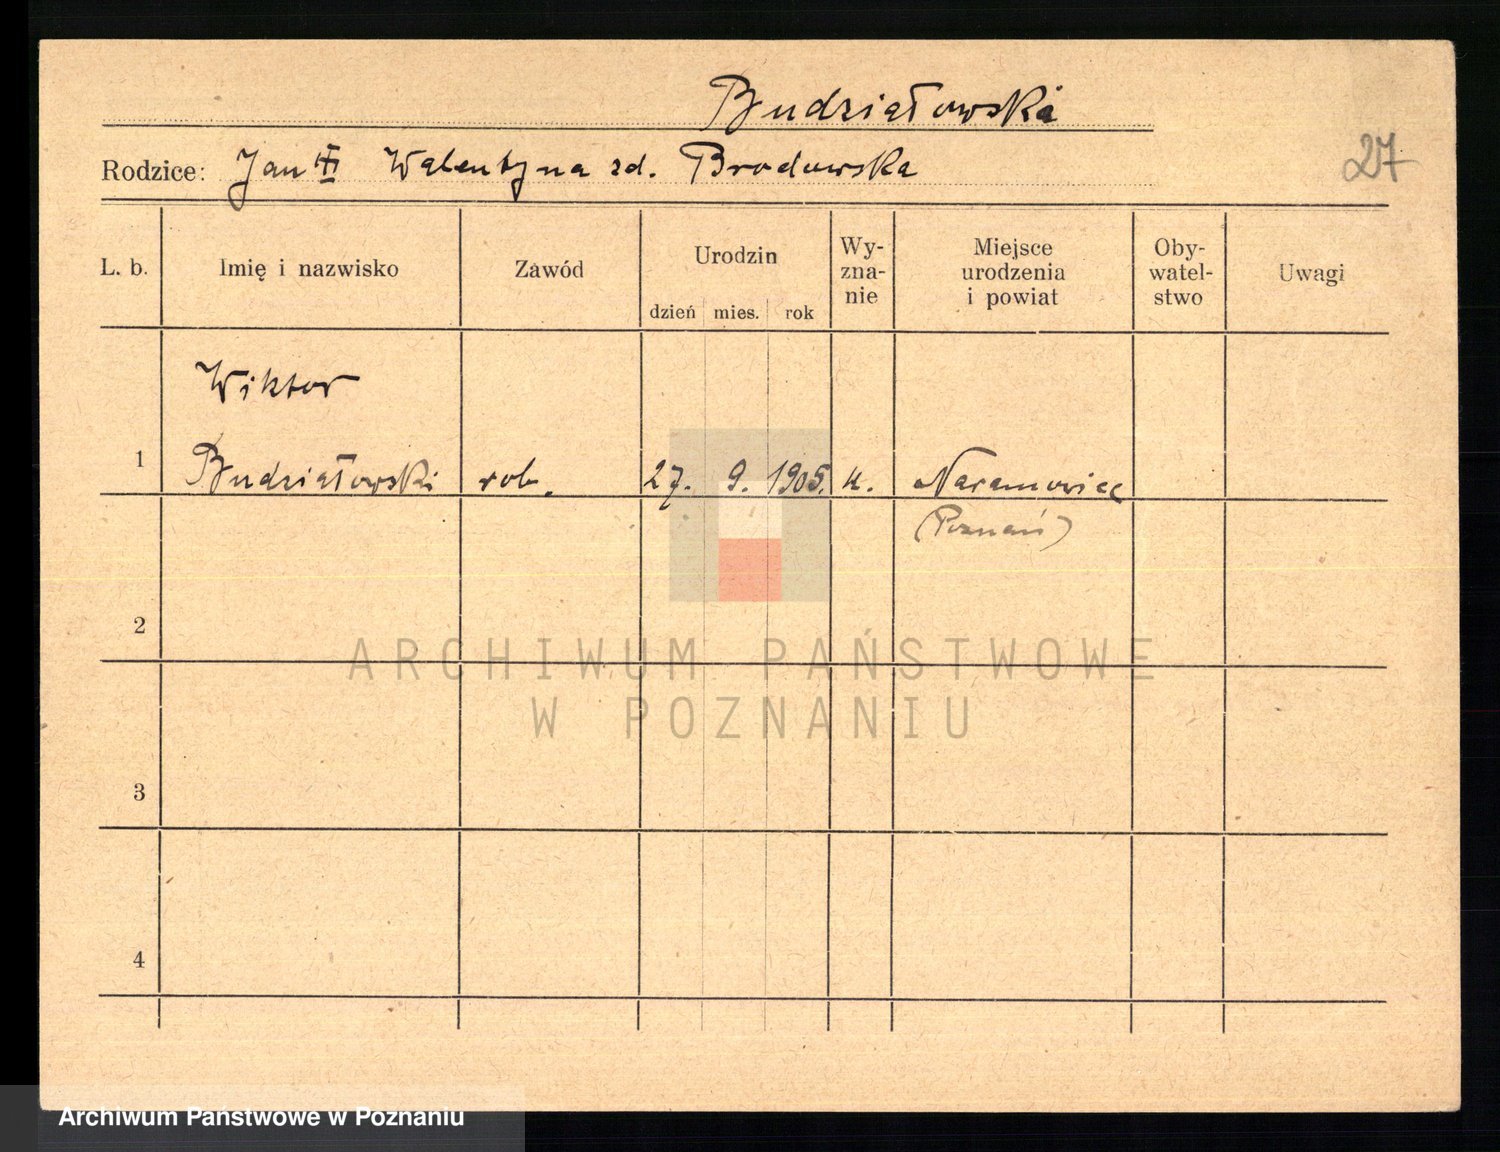 Budziałowski
27
Rodzice: Jan III Walentyna zd. Brodowska
L. b. Imię i nazwisko Zawód Urodzin dzień mies. rok Wy-zna-nie Miejsce urodzenia i powiat Oby-watel-stwo Uwagi
Wiktor
1 Budziałowski rob. 27. 9. 1905. k. Naramowice
(Poznań)
2
ARCHIWUM PAŃSTWOWE
W POZNANIU
3
4
Archiwum Państwowe w Poznaniu